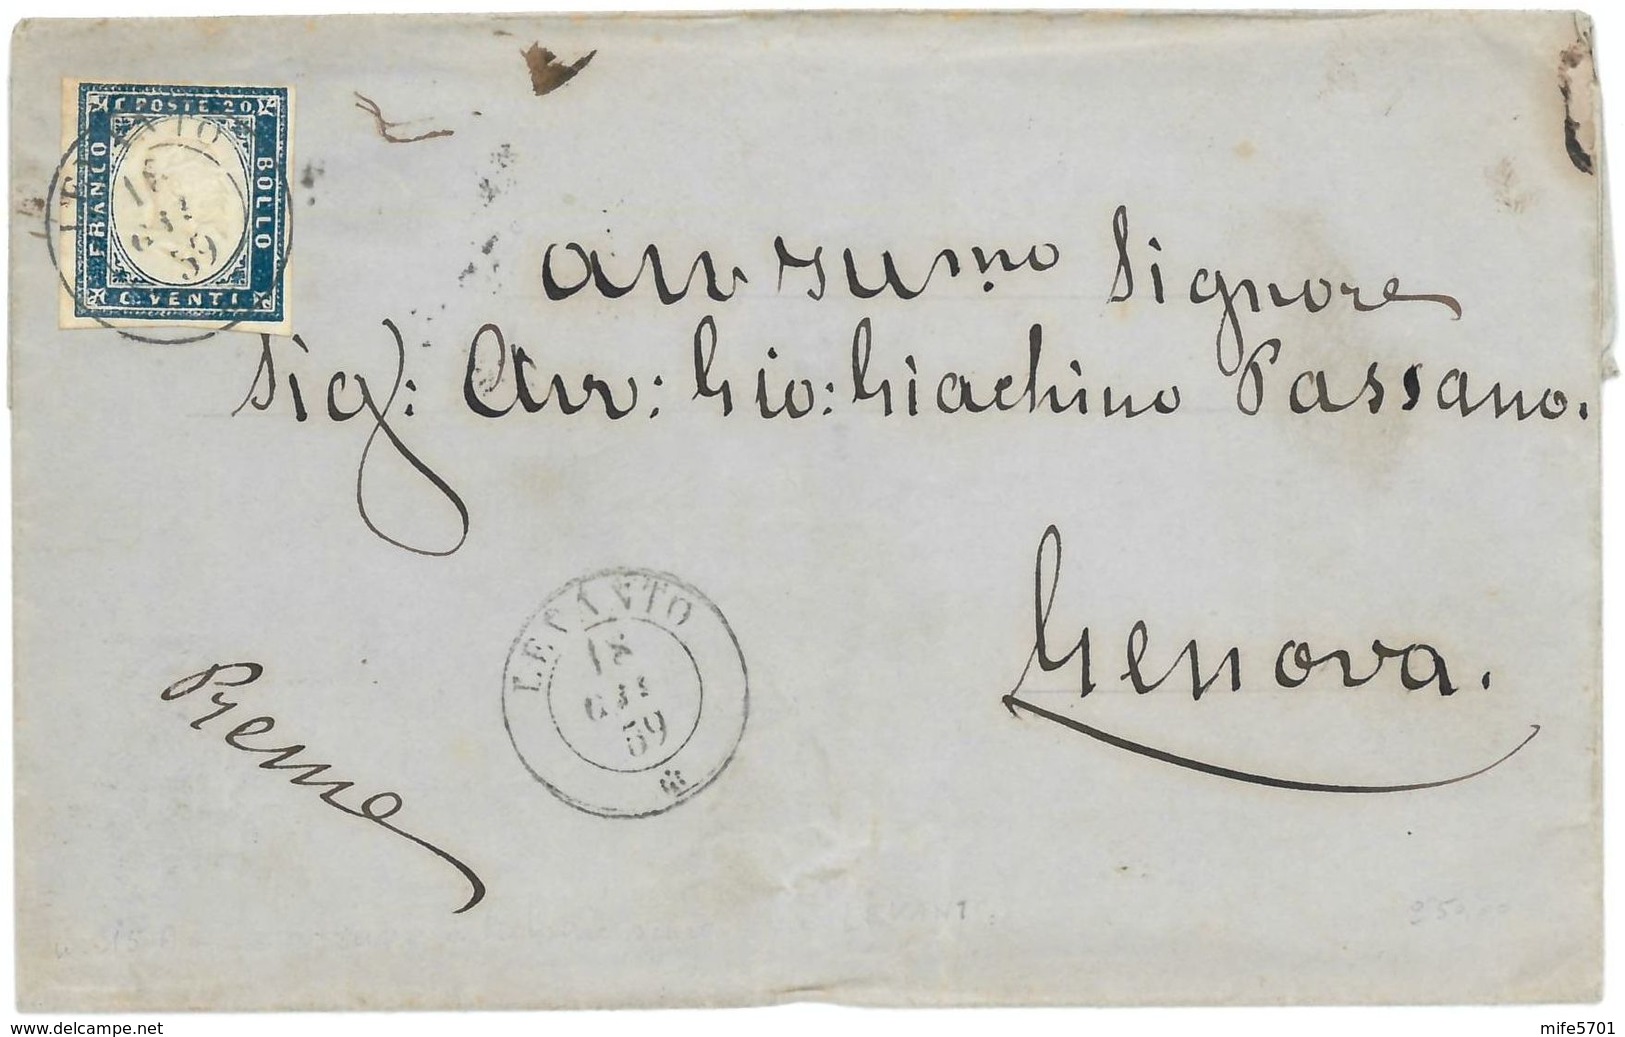 C. POSTE 20.
FRANCO
BOLLO
C. VENTI
59
Signore
Sig: Avv: Gio: Giachino Passano.
Genova.
LEVANTO
59
Preme
LEVANTO
www.delcampe.net
mife5701